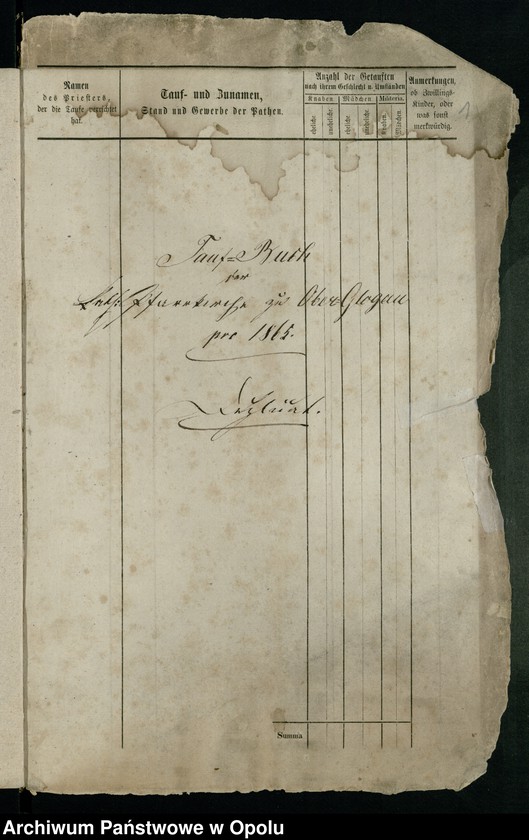 Namen
des Priesters,
der die Taufe verrichtet
hat.
Tauf- und Zunamen,
Stand und Gewerbe der Pathen.
Anzahl der Getauften
nach ihrem Geschlecht u. Umständen
Knaben. Mädchen. Militaria.
eheliche uneheliche eheliche uneheliche Knaben. Mädchen
Anmerkungen,
ob Zwillings-
Kinder, oder
was sonst
merkwürdig.
1
Tauf-Buch
der
Kath: Pfarrkirche zu Ober Glogau
pro 1865.
Duplicat.
Summa
Archiwum Państwowe w Opolu